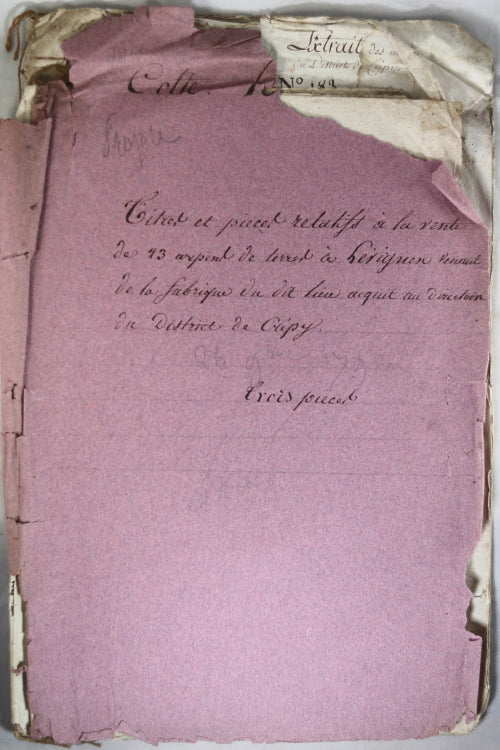 Extrait des
du District de Crépy
Cotte
No 182
Titres et pieces relatifs à la vente
de 43 arpent de terres à Lévignen venant
de la fabrique du dit lieu acquit au direction
du District de Crépy
trois pieces